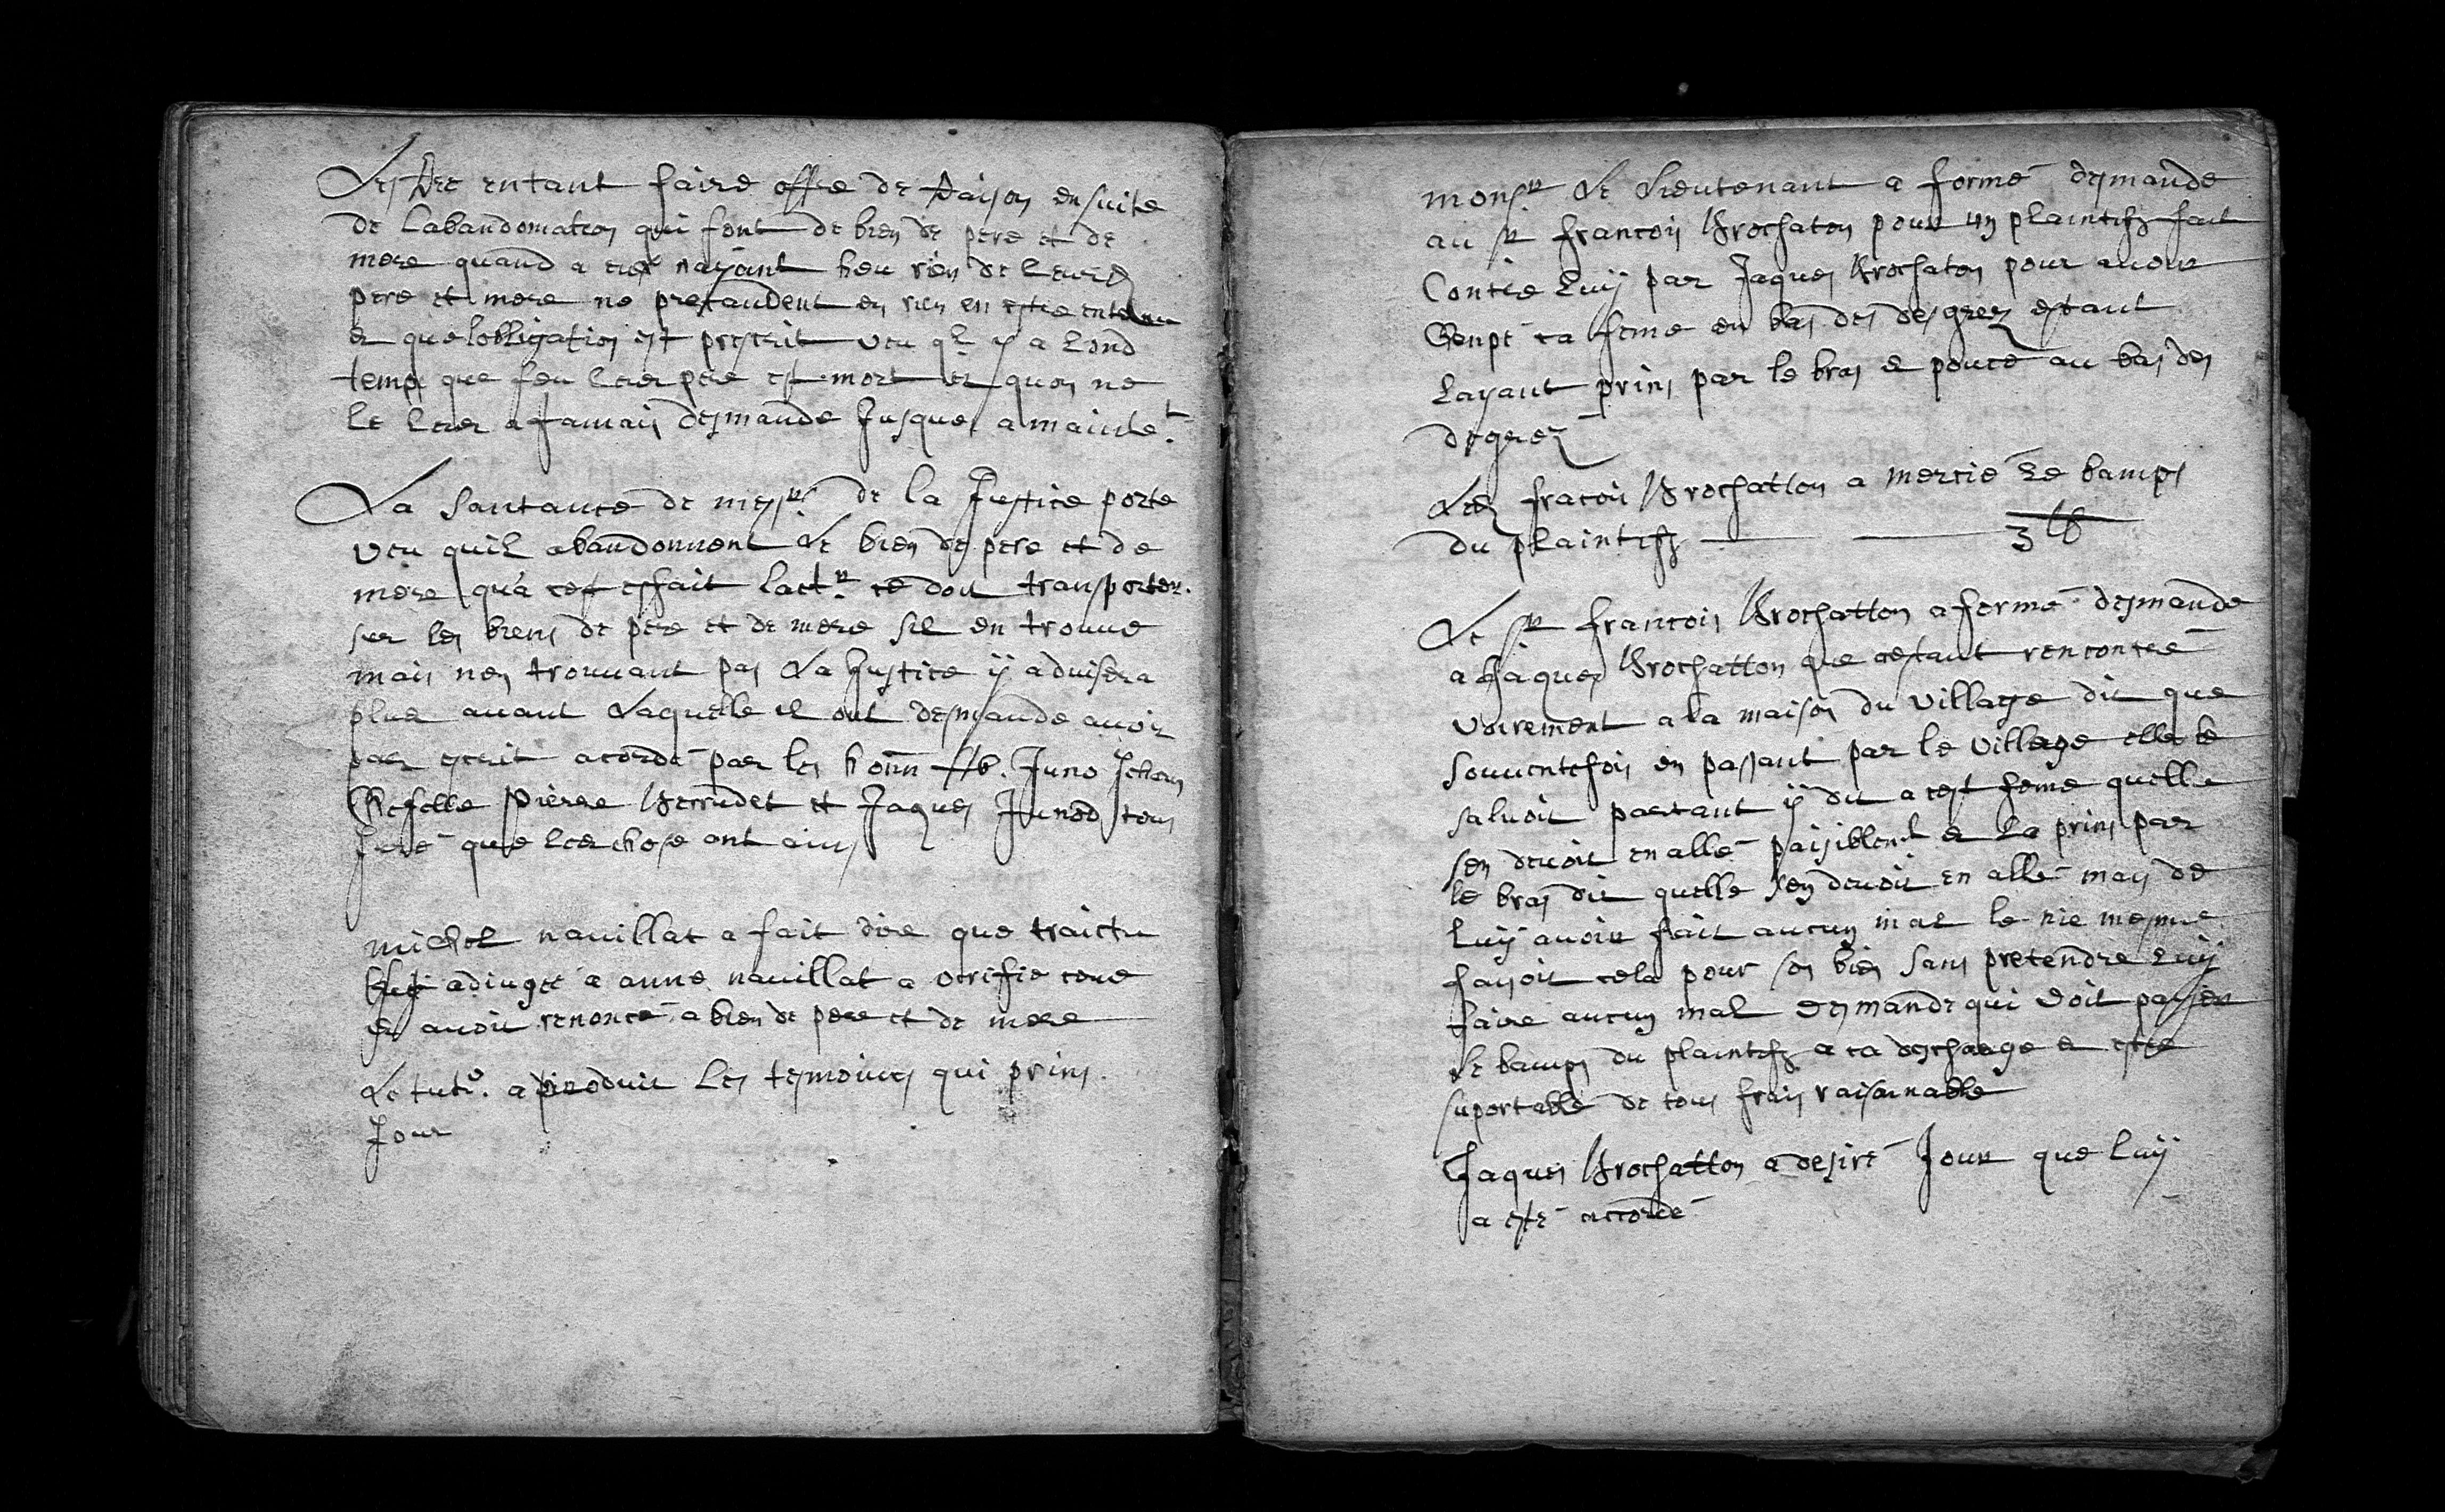 Lesdit entant faire offre de Raison ensuite
de Labandonnation qui font de bien de pere et de
mere quand a eux nayant heu rien de leurd
pere et mere ne pretandent en rien en estre entenu
et que lobligation est prescrit veu ql y a Lond
temps que feu leur pere est mort et quon ne
le leur a Jamais desmande Jusques a mainte.t
La Santance de mess.rs de la Justice porte
veu quil abandonnent Le bien de pere et de
mere qua cest effait lact.r ce doit transporter
sur les biens de pere et de mere sil en trouve
mais nen trouvant pas La Justice ij advisera
plus avant Laquelle il ont desmande avoir
par escrit acordé par les honn Jehan
Pierre et Jaques Junod tous
Juré que leschose ont ains
michel navillat a fait dire que traictu
adjugé a anne navillat a verifie
et avoir renoncé a bien de pere et de mere
Le tut.r a produit Les tesmoins qui prins
Jour
mons.r Le Lieutenant a formé desmande
au s.r francois Brochaton pour un plaintifz fait
Contre Luij par Jaques Brochaton pour avoir
sa feme en bas des desgrez estant
Layant prins par le bras et poucé au bas des
degrez
Led francoi Brochatton a mercié Le bamps
du plaintifz 3 lb
Le s.r francois Brochatton a formé desmande
a Jaques Brochatton que cestant rencontré
voirement a la maison du village dit que
souventefois en passant par le village elle le
saluoit partant ij dit a cest feme quelle
sen devoit en allé paisiblem.t et La prins par
le bras dit quelle sen devoit en allé mais de
Luij avoir fait aucun mal le nie mesme
faisoit cela pour son bien sans pretendre Luij
faire aucun mal desmande qui doit paijer
Le bamps du plaintifz a sa descharge et estre
suportable de tous frais raisonnable
Jaques Brochatton a desiré Jour que luij
a esté accordé